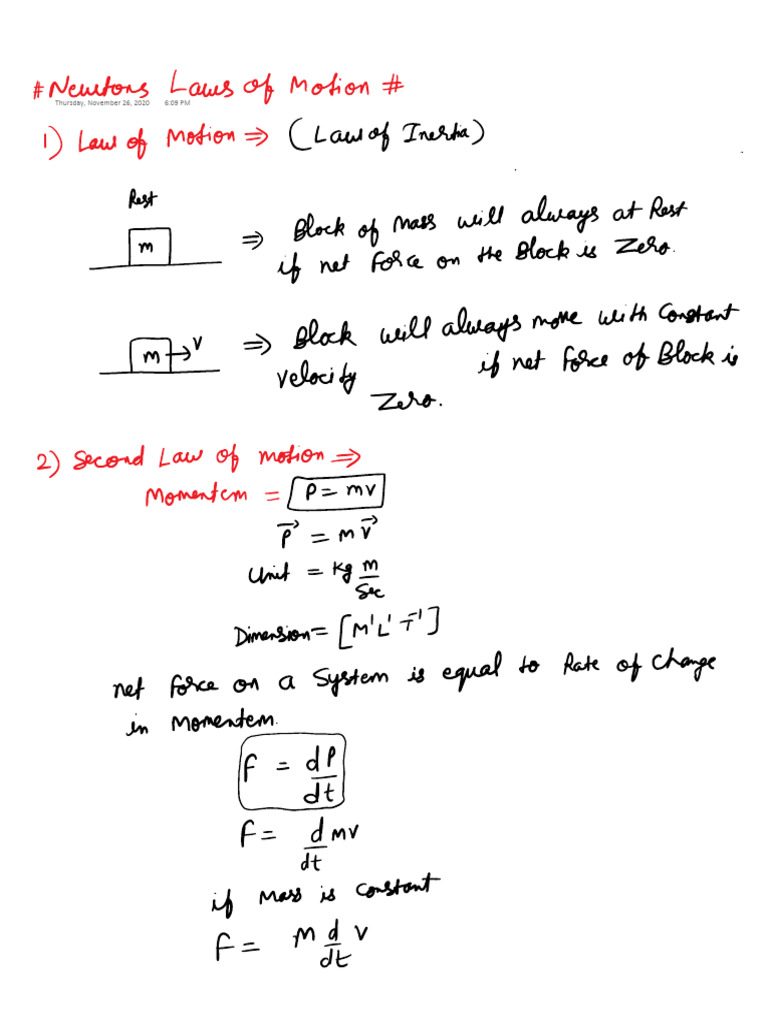 # Newtons Laws of Motion #
Thursday, November 26, 2020 6:09 PM
1) Law of Motion ⇒ (Law of Inertia)
Rest
m ⇒ Block of Mass will always at Rest
if net force on the Block is Zero.
m → V ⇒ Block will always move with Constant
velocity if net force of Block is
Zero.
2) Second Law of motion ⇒
Momentem = P = mv
P⃗ = m v⃗
Unit = Kg m/Sec
Dimension = [M¹L¹T⁻¹]
net force on a System is equal to Rate of Change
in Momentem.
F = dP/dt
F = d/dt mv
if Mass is Constant
F = M d/dt V